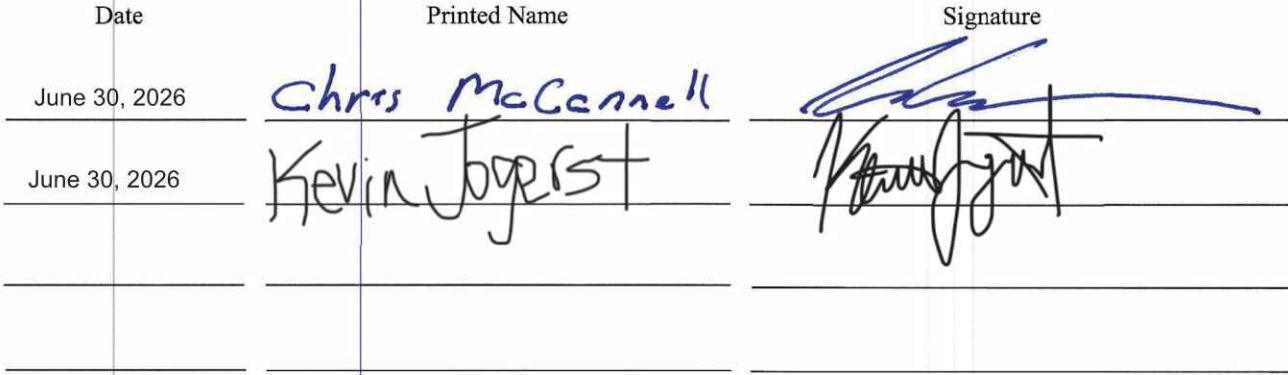 Date Printed Name Signature
June 30, 2026 Chris McCannell
June 30, 2026 Kevin Jogerst